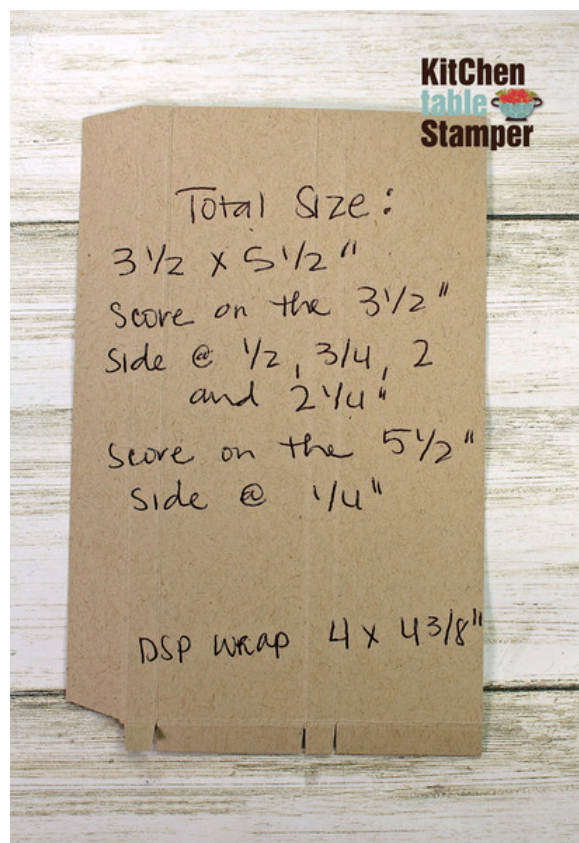 KitChen
table
Stamper
Total Size:
3 1/2 x 5 1/2"
Score on the 3 1/2"
Side @ 1/2, 3/4, 2
and 2 1/4"
Score on the 5 1/2"
Side @ 1/4"
DSP Wrap 4 x 4 3/8"